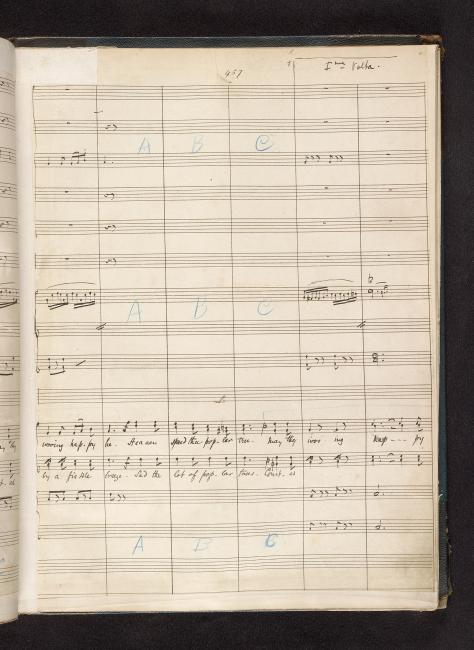 457
1 Ima Volta.
A B C
A B C
wooing hap-py be. Heaven speed thee pop-lar tree. May thy woo-ing hap--- py
by a fickle breeze. Sad the lot of pop-lar trees. Court-ed
A B C